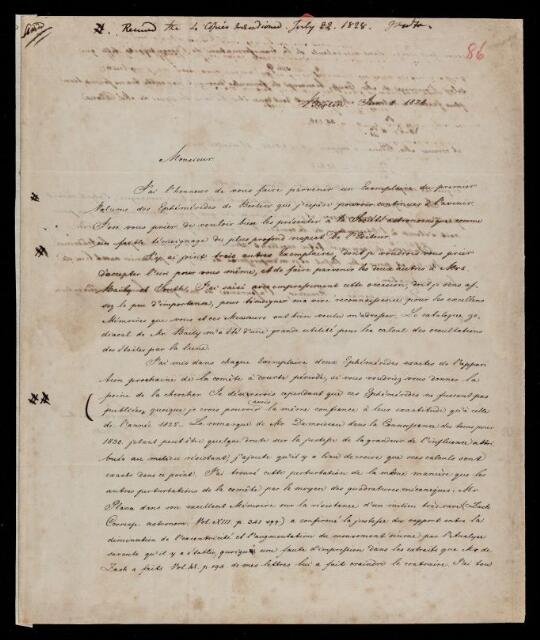 Recevd the 4 Copies mentioned July 22. 1828.
86
Monsieur
J'ai l'honneur de vous faire parvenir un Exemplaire du premier
Volume des Ephémérides de Berlin que j'espère pouvoir continuer à l'avenir.
J'ose vous prier de vouloir bien les présenter à la Société astronomique comme
un faible témoignage du plus profond respect de l'Editeur.
J'y ai joint trois autres Exemplaires, dont je voudrais vous prier
d'accepter l'un pour vous même, et de faire parvenir les deux autres à Mrs
Baily et South. J'ai saisi avec empressement cette occasion, dont je sens as-
sez le peu d'importance, pour témoigner ma vive reconnaissance pour les excellens
Mémoires que vous et ces Messieurs ont bien voulu m'adresser. Le catalogue zo-
diacal de Mr. Baily m'a été d'une grande utilité pour les calculs des occultations
des étoiles par la lune.
J'ai mis dans chaque Exemplaire deux Ephémérides exactes de l'appari-
tion prochaine de la comète à courte période, si vous voudriez vous donner la
peine de la chercher. Je désirerois cependant que ces Ephémérides ne fussent pas
publiées, quoique je crois pouvoir avoir la même confiance à leur exactitude qu'à celle
de l'année 1825. La remarque de Mr Damoiseau dans la Connaissance des tems pour
1830. jetant peut être quelque doute sur la justesse de la grandeur de l'influence attri-
buée au milieu résistant, j'ajoute qu'il y a lieu de croire que mes calculs sont
exacts dans ce point. J'ai trouvé cette perturbation de la même manière que les
autres perturbations de la comète par le moyen des quadratures mécaniques. Mr
Plana dans son excellent Mémoire sur la résistance d'un milieu très rare (Zach
Corresp. astronom. Vol. XIII p. 341) a confirmé la justesse du rapport entre la
diminution de l'excentricité et l'augmentation du mouvement moyen par l'Analyse
savante qu'il y a établie, quoiqu'une faute d'impression dans les extraits que Mr de
Zach a faits de mes lettres lui a fait craindre le contraire. J'ai tou